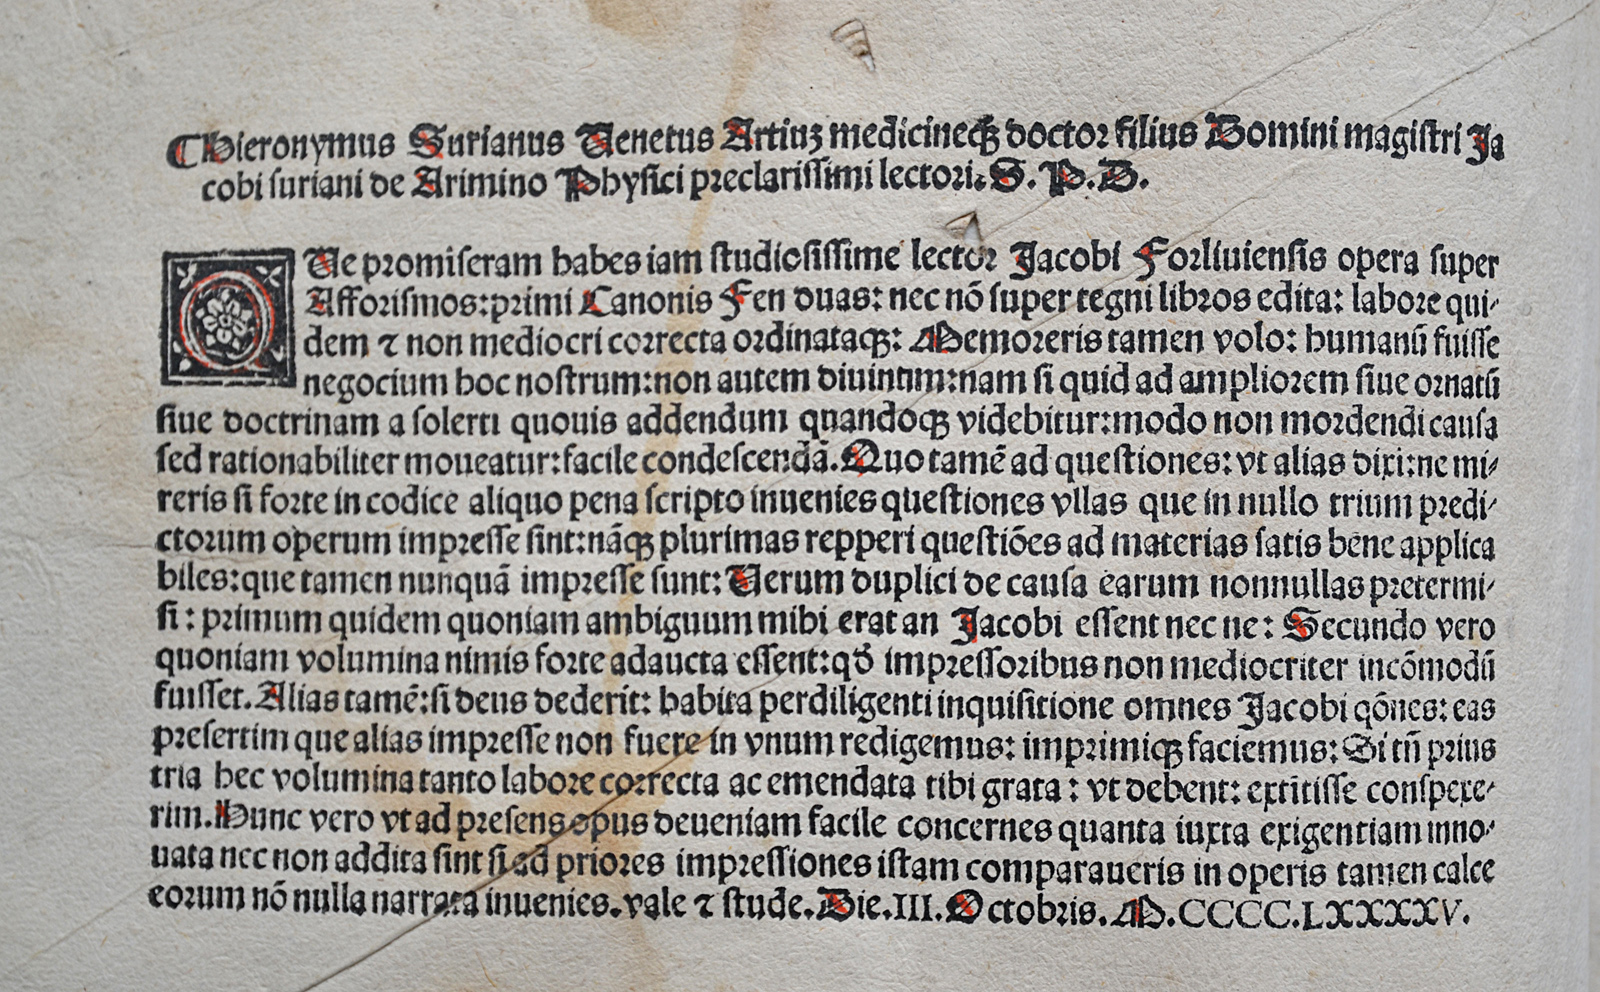 Hieronymus Surianus Uenetus Artiuꝫ medicineqꝫ doctor filius Domini magistri Ja
cobi suriani de Arimino Physici preclarissimi lectori: S. P. D.
QUe promiseram habes iam studiosissime lector Jacobi Forliuiensis opera super
Afforismos: primi Canonis Fen duas: nec nõ super tegni libros edita: labore qui-
dem ⁊ non mediocri correcta ordinataqꝫ: Memoreris tamen volo: humanũ fuisse
negocium hoc nostrum: non autem diuinum: nam si quid ad ampliorem siue ornatũ
siue doctrinam a solerti quouis addendum quandoqꝫ videbitur: modo non mordendi causa
sed rationabiliter moueatur: facile condescendã. Quo tamẽ ad questiones: vt alias dixi: ne mi-
reris si forte in codice aliquo pena scripto inuenies questiones vllas que in nullo trium predi-
ctorum operum impresse sint: nãqꝫ plurimas repperi questiões ad materias satis bene applica
biles: que tamen nunquã impresse sunt: Uerum duplici de causa earum nonnullas pretermi-
si: primum quidem quoniam ambiguum mihi erat an Jacobi essent nec ne: Secundo vero
quoniam volumina nimis forte adaucta essent: qđ impressoribus non mediocriter incõmodũ
fuisset. Alias tamẽ: si deus dederit: habita perdiligenti inquisitione omnes Jacobi qõnes: eas
presertim que alias impresse non fuere in vnum redigemus: imprimiqꝫ faciemus: Si tñ prius
tria hec volumina tanto labore correcta ac emendata tibi grata: vt debent: extitisse conspexe-
rim. Hunc vero vt ad presens opus deueniam facile concernes quanta iuxta exigentiam inno-
uata nec non addita sint si ad priores impressiones istam comparaueris in operis tamen calce
eorum nõ nulla narrata inuenies. vale ⁊ stude. Die. III. Octobris. M.CCCC.LXXXXV.